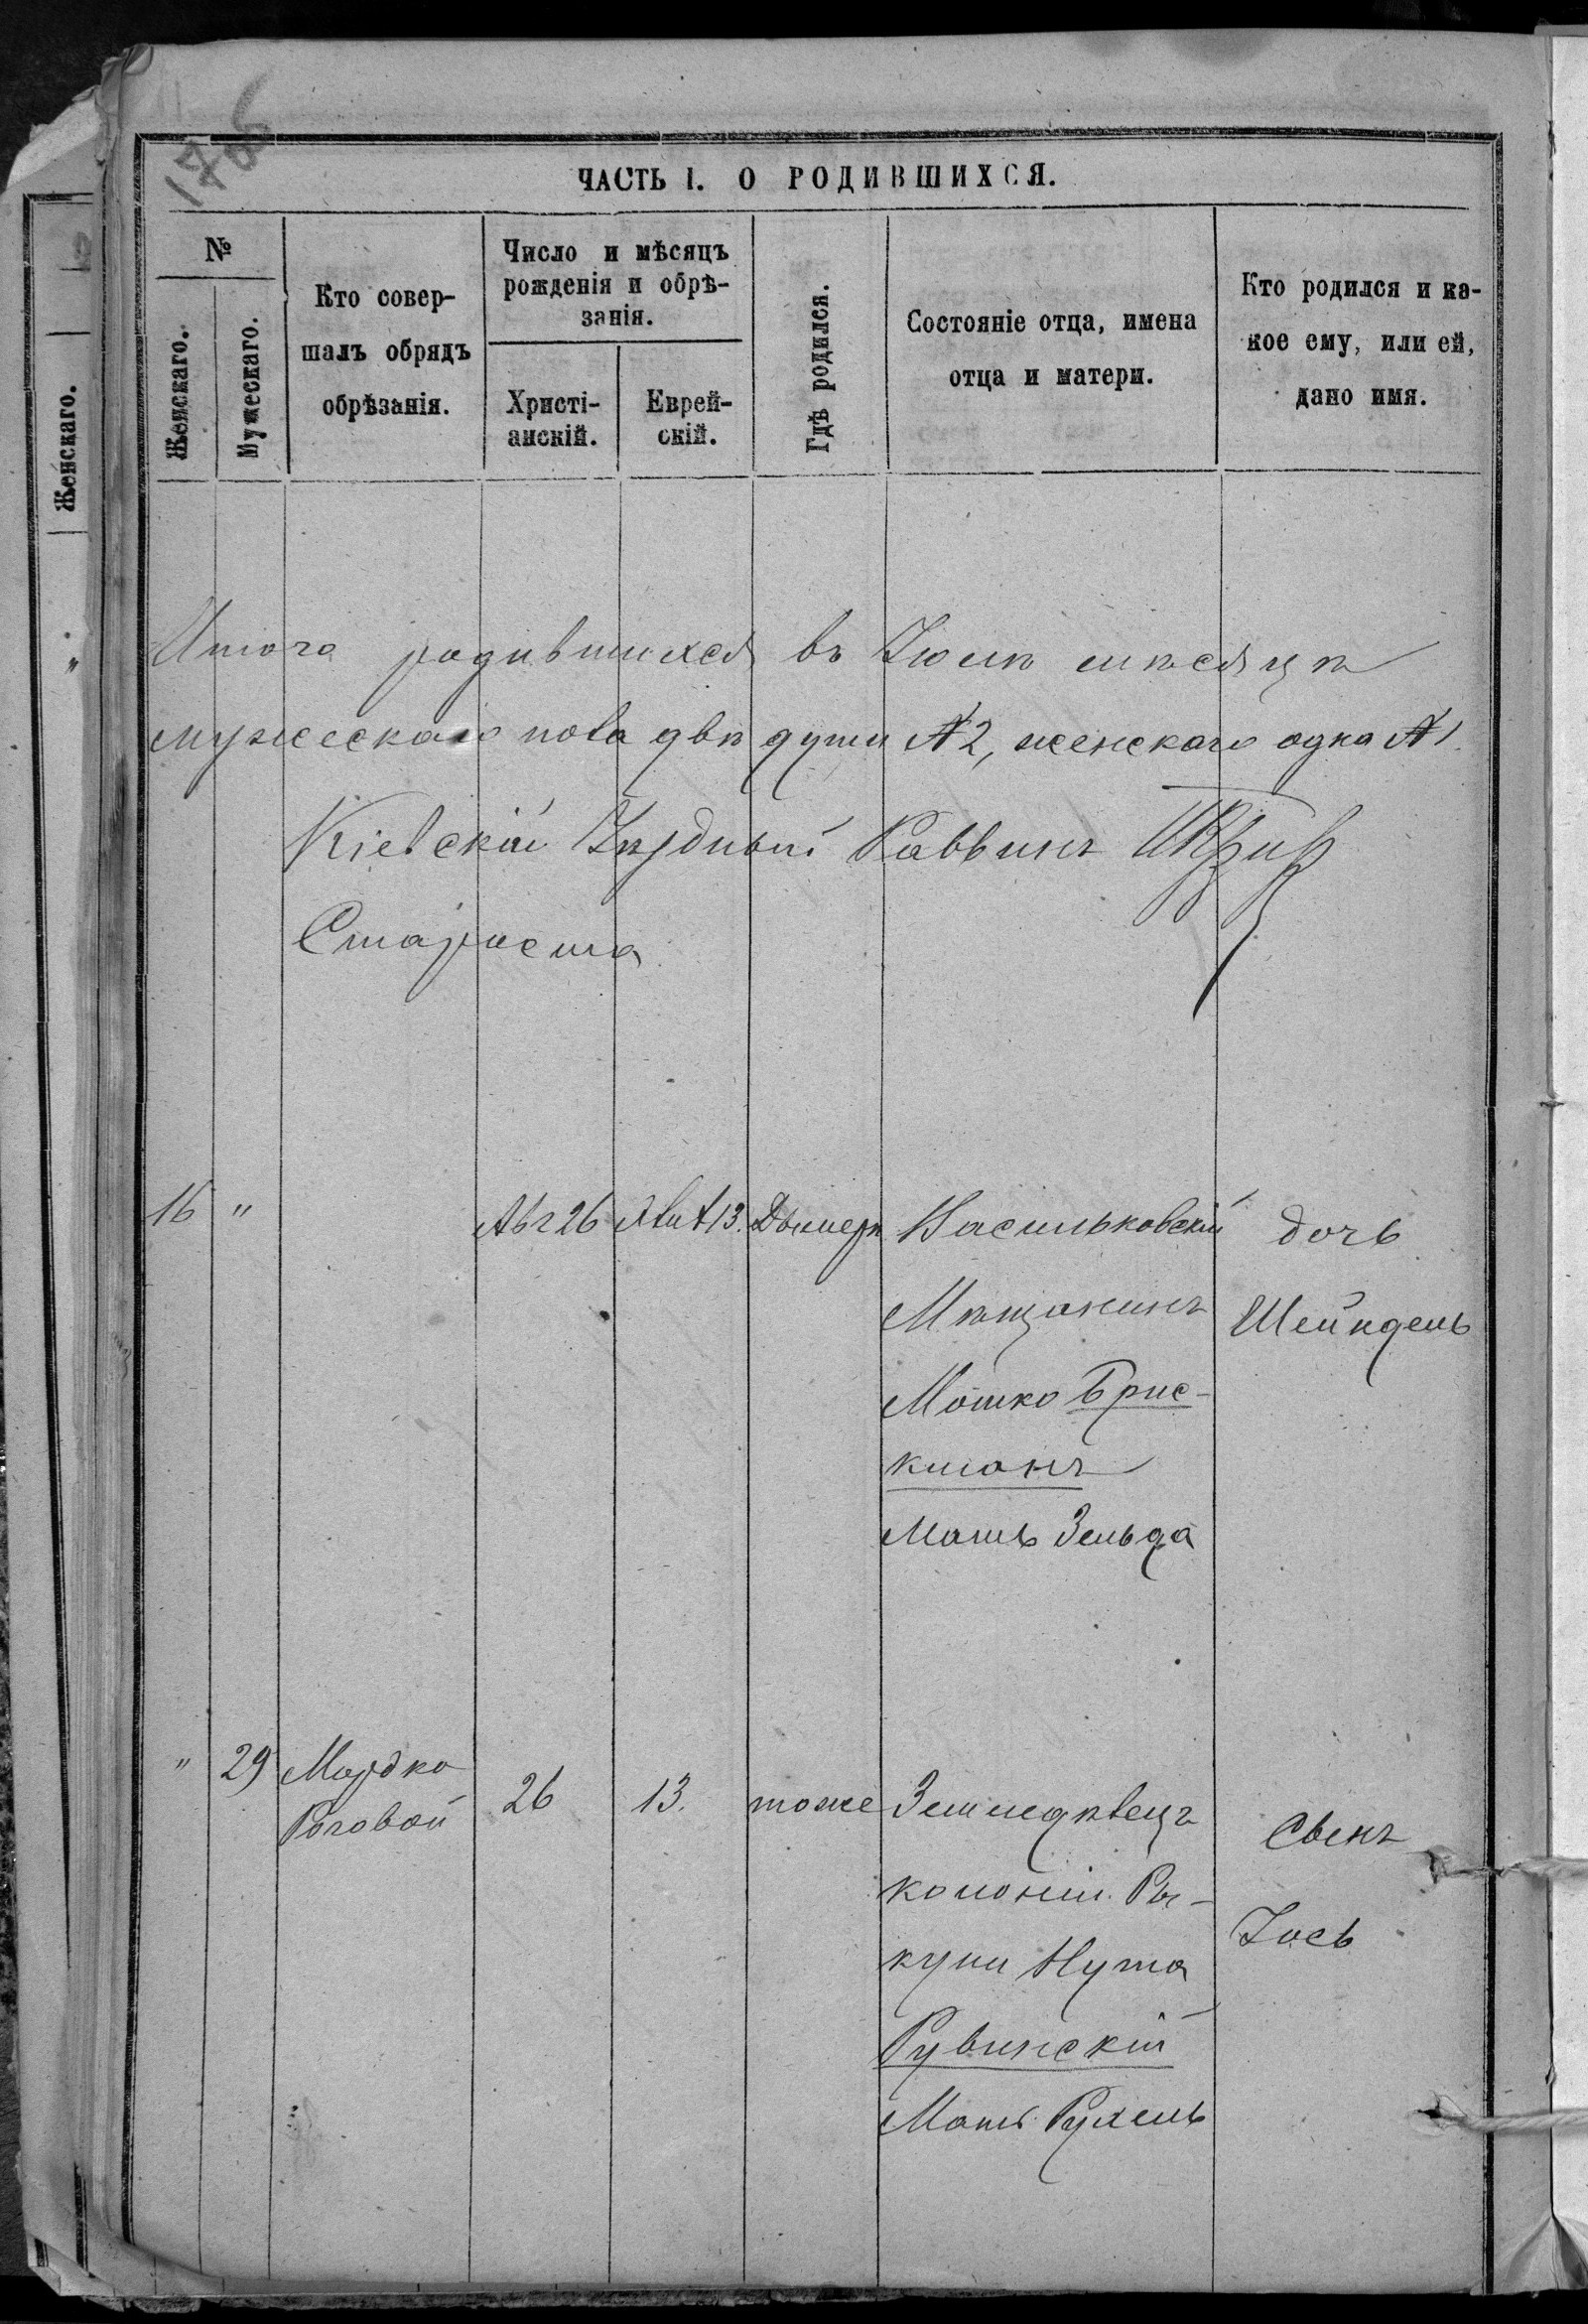 ЧАСТЬ I. О РОДИВШИХСЯ.
№
Женскаго.
Мужескаго.
Кто совер-
шалъ обрядъ
обрѣзанія.
Число и мѣсяцъ
рожденія и обрѣ-
занія.
Христі-
анскій.
Еврей-
скій.
Гдѣ родился.
Состояніе отца, имена
отца и матери.
Кто родился и ка-
кое ему, или ей,
дано имя.
Итого родившихся въ Іюлѣ мѣсяцѣ
мужескаго пола двѣ души № 2, женскаго одна № 1
Кіевскій Уѣздный Раввинъ
Староста
16 " Авг 26 13. Дымерѣ Васильковскій дочь
Мѣщанинъ Шейндель
Мошко Брис-
кманъ
Мать Зельда
" 29 Мордко
Роговой
26 13. тоже Земледѣлецъ
Сынъ
колоніи Ры-
Іось
куни Нута
Рувинскій
Мать Рухель
Женскаго.
"